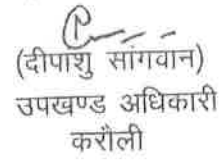 (दीपाशु सांगवान)
उपखण्ड अधिकारी
करौली